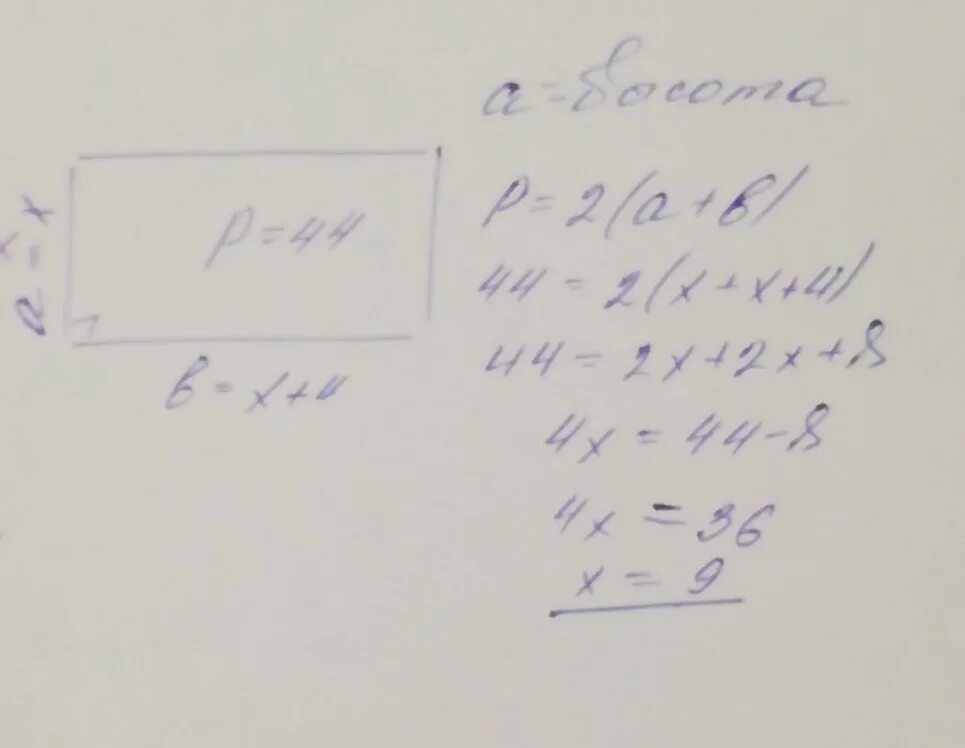 a = высота
a = x
P = 44
в = x + 4
P = 2(a + в)
44 = 2(x + x + 4)
44 = 2x + 2x + 8
4x = 44 - 8
4x = 36
x = 9